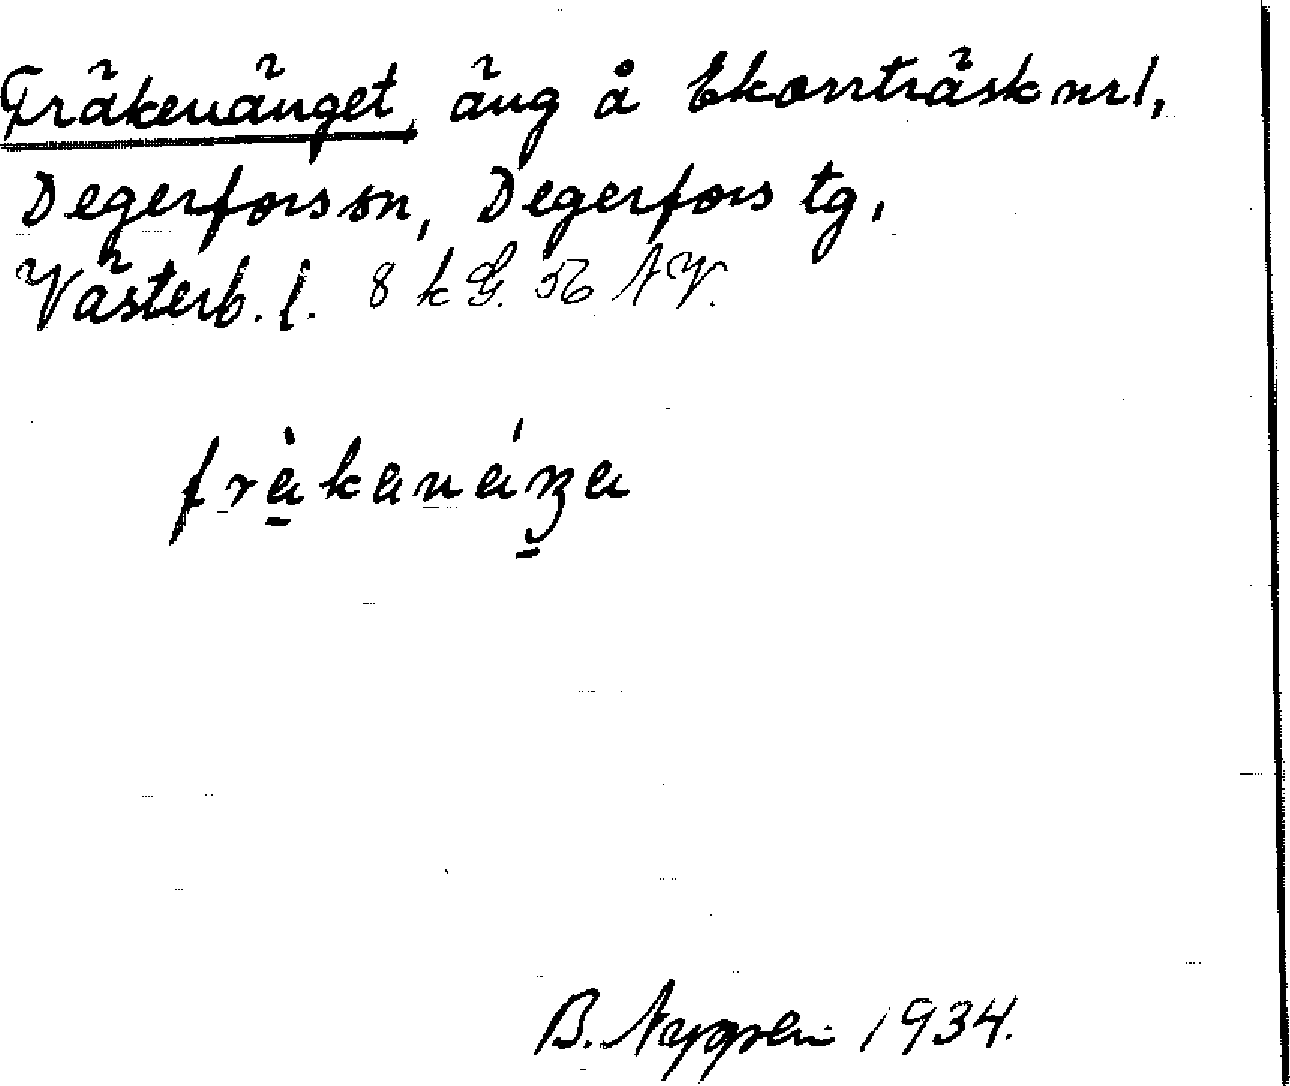 Fräkenänget, äng å Ekorrträsk nr 1,
Degerfors sn, Degerfors tg,
Västerb. l. 8 k G. 56 NV.
fräkanäŋa
B. Nygren 1934.